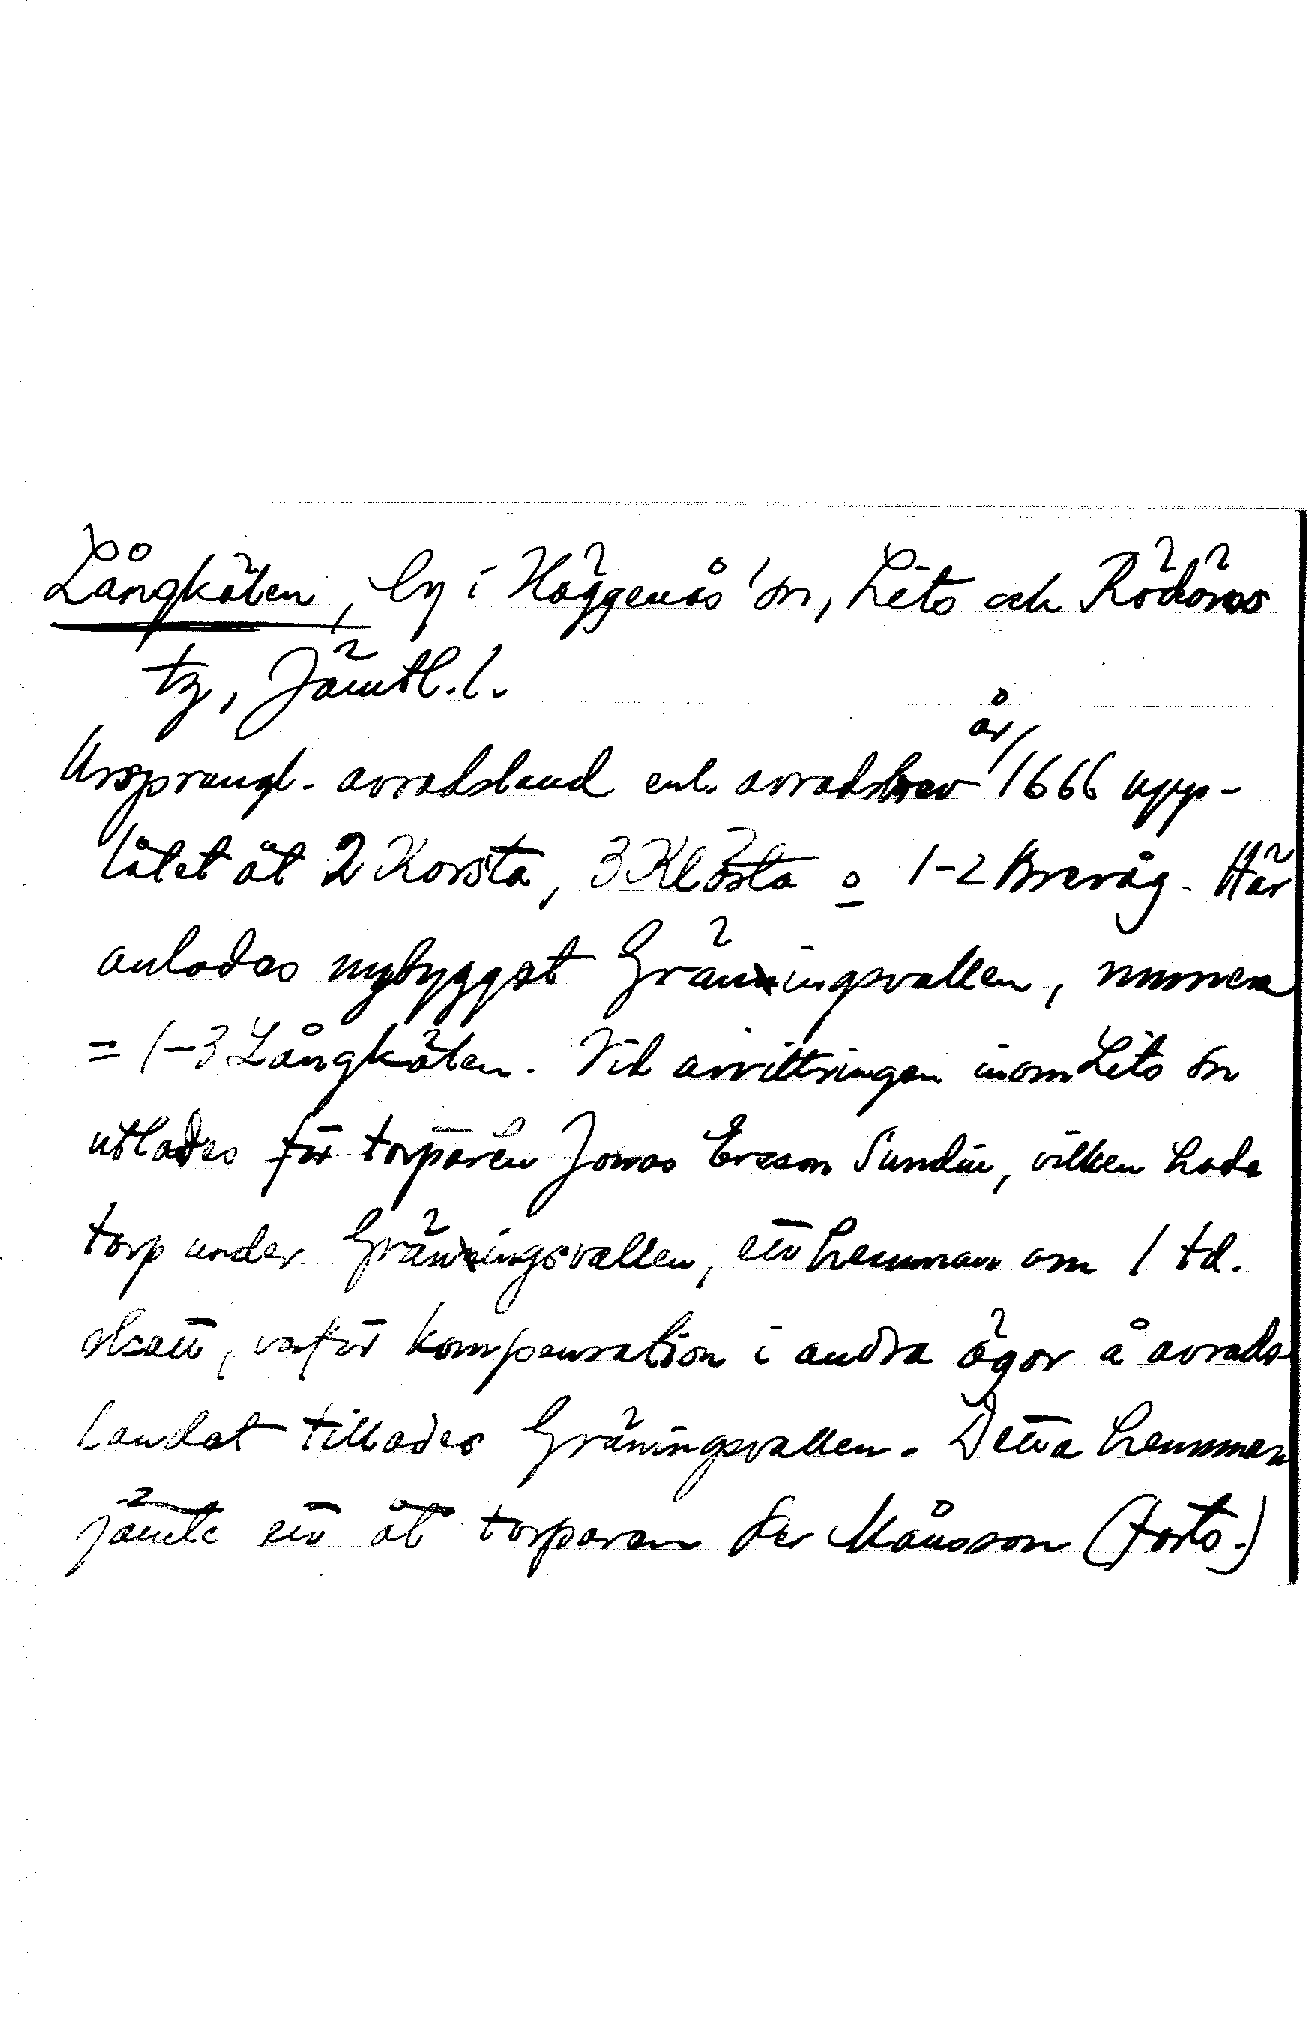 Långkälen, by i Häggenås sn, Lits och Rödöns
tg, Jämtl. l.
Ursprungl. avradsland enl. avradsbrev år 1666 upp-
låtet åt 2 Korsta, 3 Klösta o 1-2 Brevåg. Här
anlades nybygget Gräningsvallen, numera
= 1-3 Långkälen. Vid avvittringen inom Lits sn
utlades för torparen Jonas Ersson Sundin, vilken hade
torp under Gräningsvallen, ett hemman om 1 td.
skatt, varför kompensation i andra ägor å avrads
landet tillades Gräningsvallen. Detta hemman
jämte ett åt torparen Per Månsson (forts.)